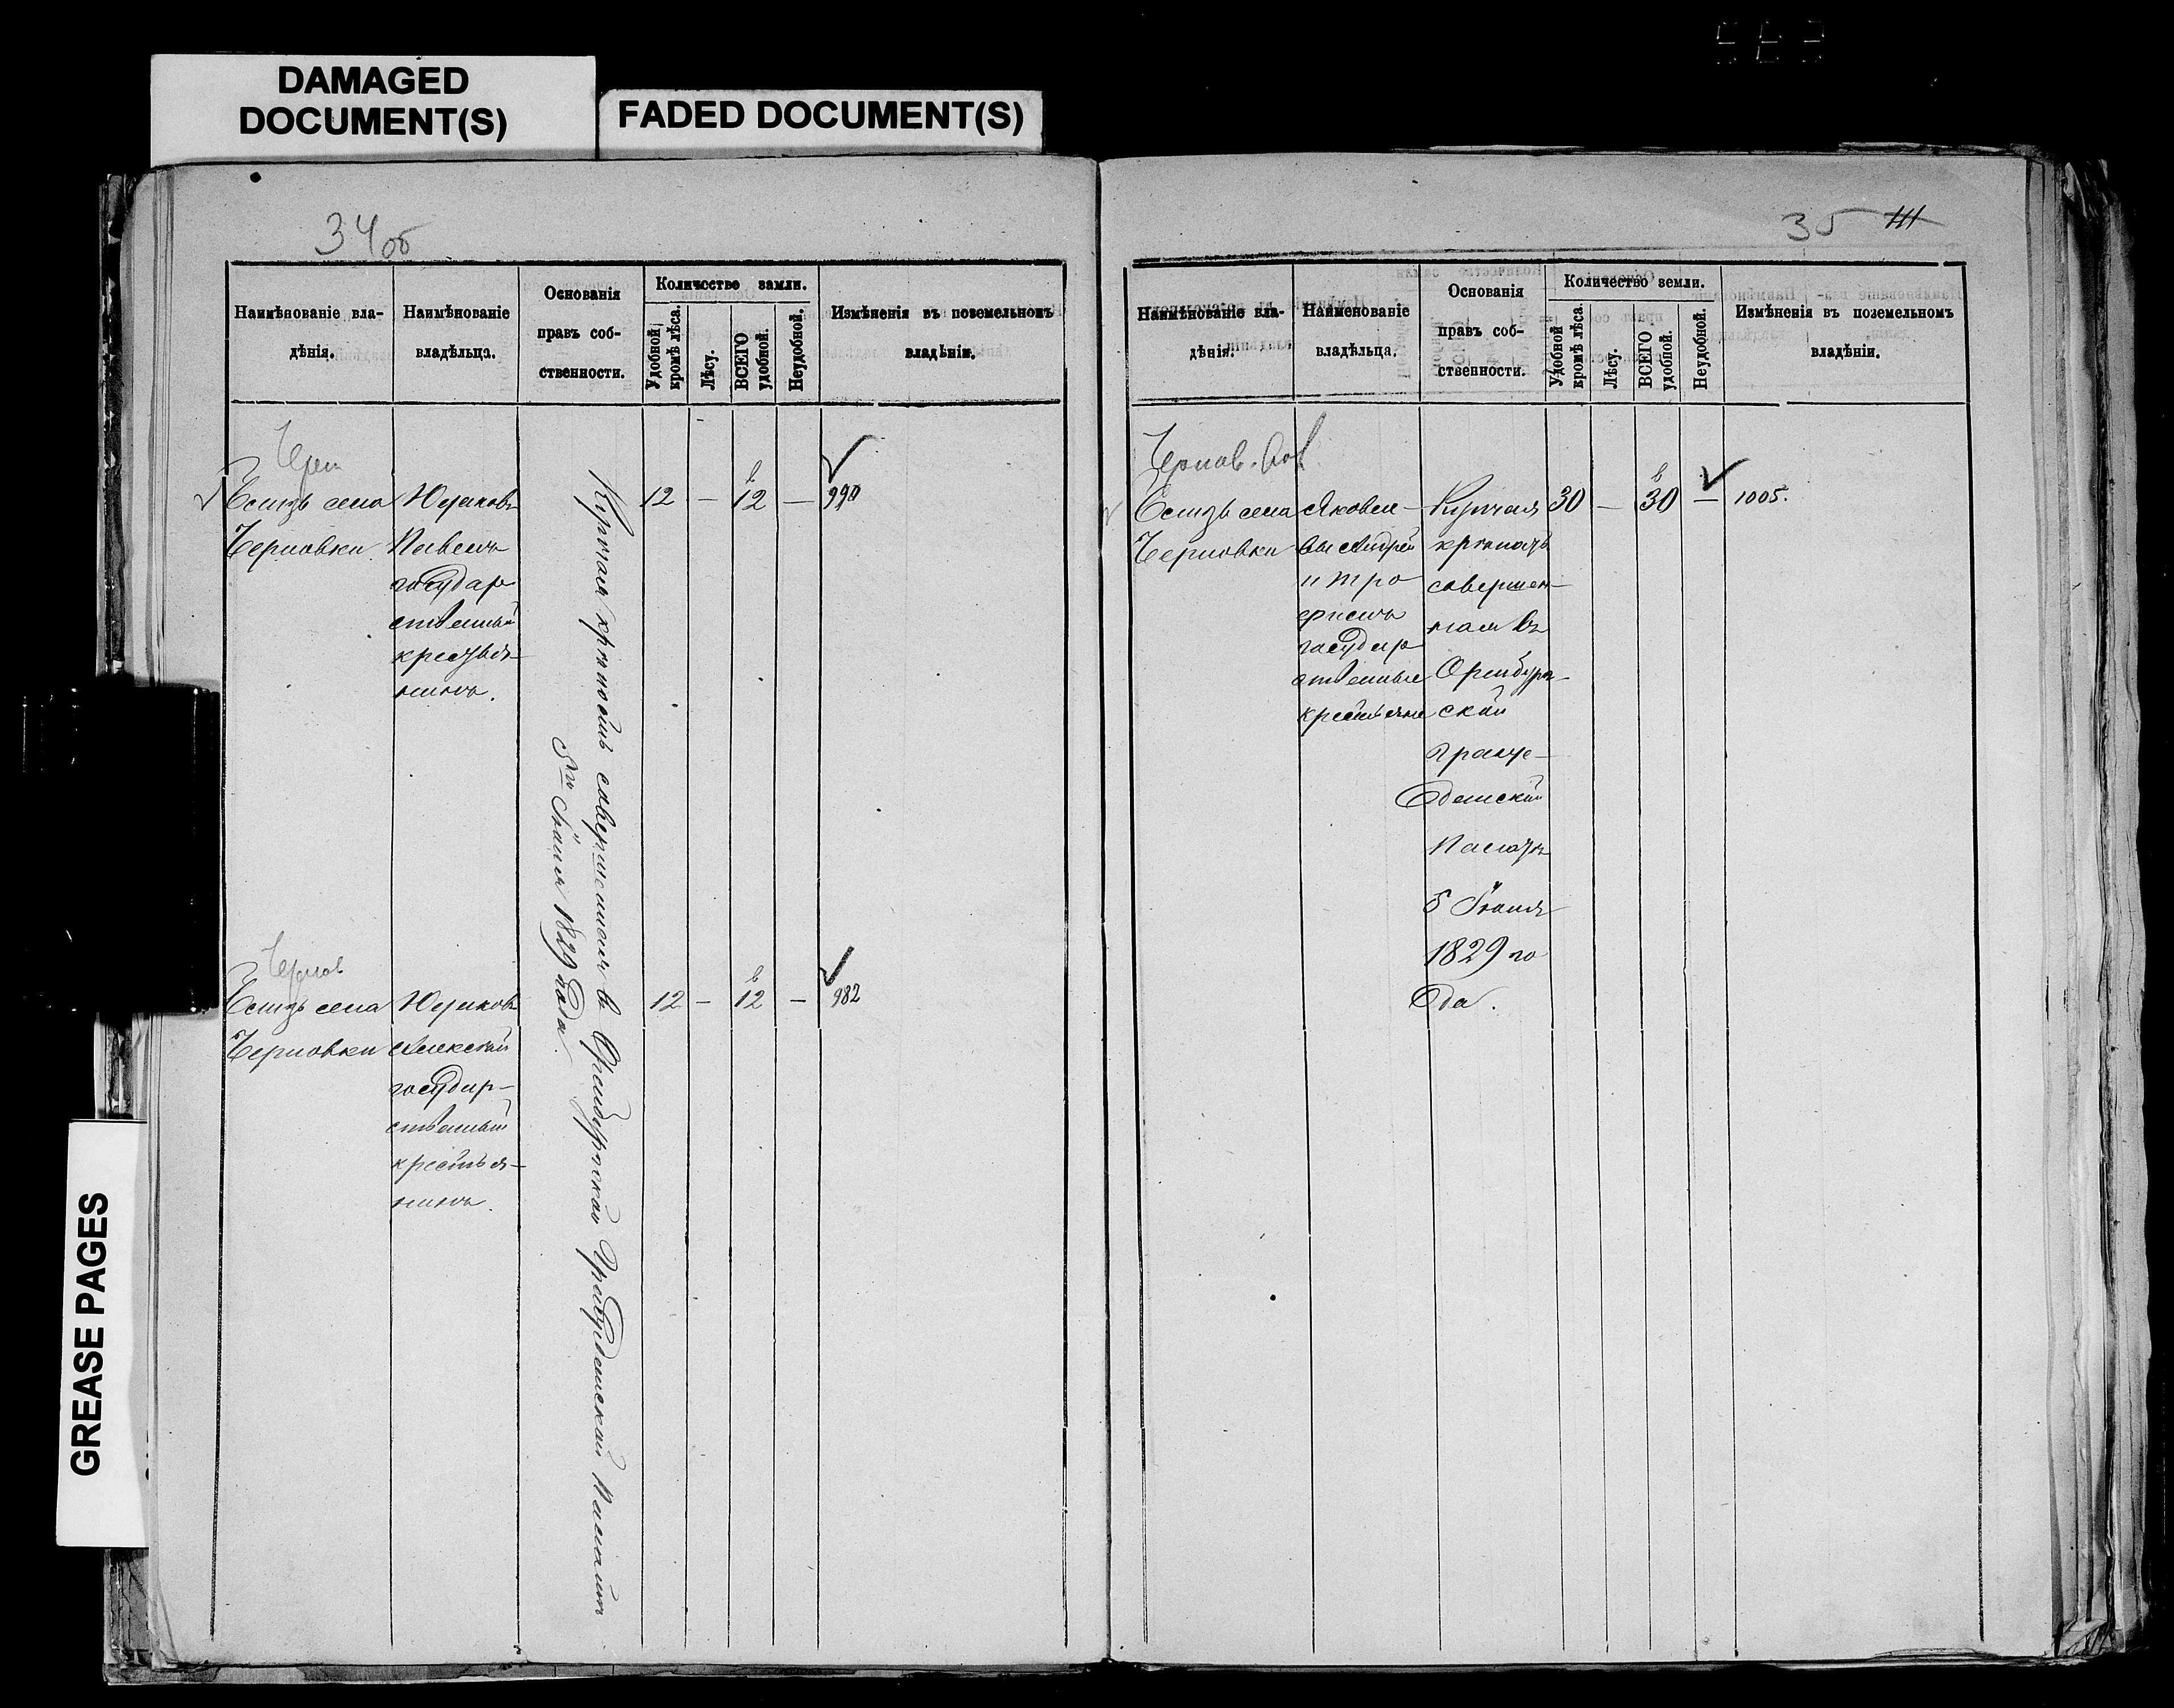 DAMAGED
DOCUMENT(S)
FADED DOCUMENT(S)
GREASE PAGES
34об
Наимѣнованіе вла-
дѣнія.
Наимѣнованіе
владѣльца.
Основанія
правъ соб-
ственности.
Количество земли.
Удобной
кромѣ лѣса.
Лѣсу.
ВСЕГО
удобной.
Неудобной.
Измѣненія въ поземельномъ
владѣніи.
села
Черновки
Павелъ
государ
ственный
кресть
янинъ.
12 — 12 — 990
Купчая крѣпость совершенная въ Оренбургской Гражданской Палатѣ
5го Іюня 1829 года.
Чернов
села
Черновки
Алексѣй
государ-
ственный
крестья-
нинъ.
12 — 12 — 982
35
Наимѣнованіе вла-
дѣнія.
Наименованіе
владѣльца.
Основанія
правъ соб-
ственности.
Количество земли.
Удобной
кромѣ лѣса.
Лѣсу.
ВСЕГО
удобной.
Неудобной.
Измѣненія въ поземельномъ
владѣніи.
Чернов.
села
Черновки
Яковле-
вы Андрей
и Тро
фимъ
государ
ственные
крестьяне
Купчая
крѣпость
совершен-
ная въ
Оренбург-
ской
Граж-
данской
Палатѣ
5 Іюня
1829 го
да.
30 — 30 — 1005.